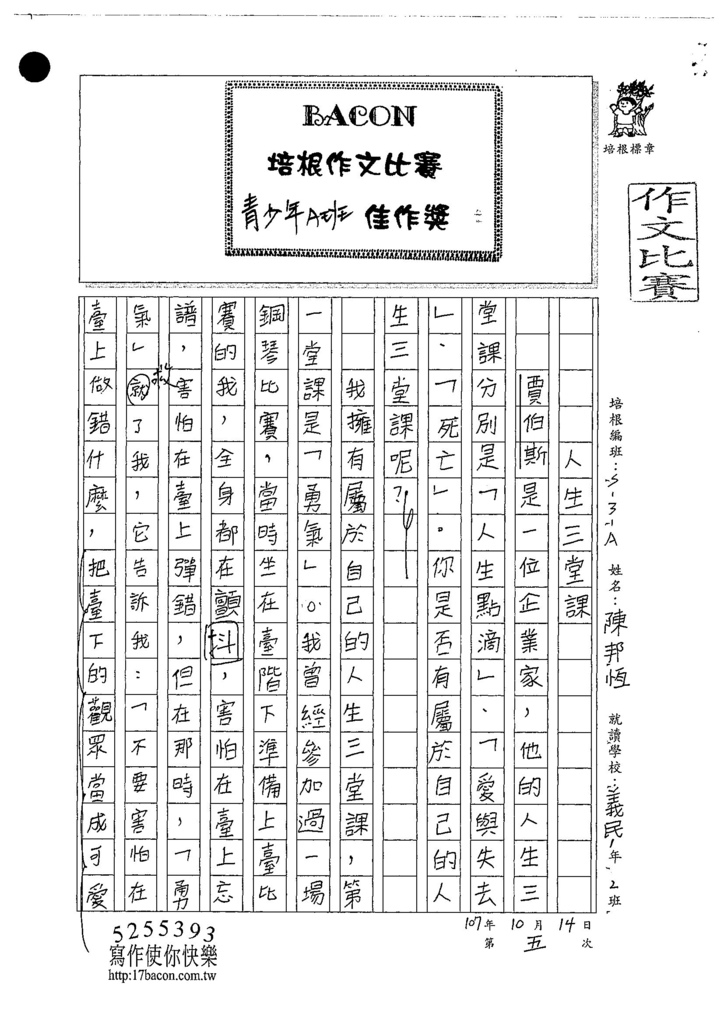 BACON
培根作文比賽
青少年A班 佳作獎
培根標章
作文比賽
培根編班：S-3-A 姓名：陳邦恆 就讀學校：義民1年2班
107年10月14日
第五次
人生三堂課
賈伯斯是一位企業家，他的人生三
堂課分別是「人生點滴」、「愛與失去
」、「死亡」。你是否有屬於自己的人
生三堂課呢？
我擁有屬於自己的人生三堂課，第
一堂課是「勇氣」。我曾經參加過一場
鋼琴比賽，當時坐在臺階下準備上臺比
賽的我，全身都在顫抖，害怕在臺上忘
譜，害怕在臺上彈錯，但在那時，「勇
氣」救了我，它告訴我：「不要害怕在
臺上做錯什麼，把臺下的觀眾當成可愛
5255393
寫作使你快樂
http:17bacon.com.tw